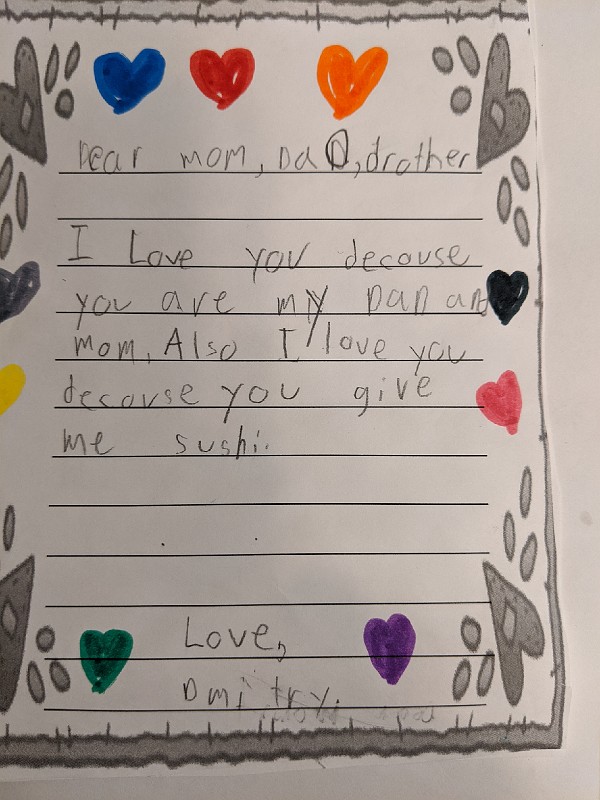 Dear mom, DaD, drother
I Love you decause
you are my DaD and
mom, Also I love you
decause you give
me sushi.
Love,
Dmitry.